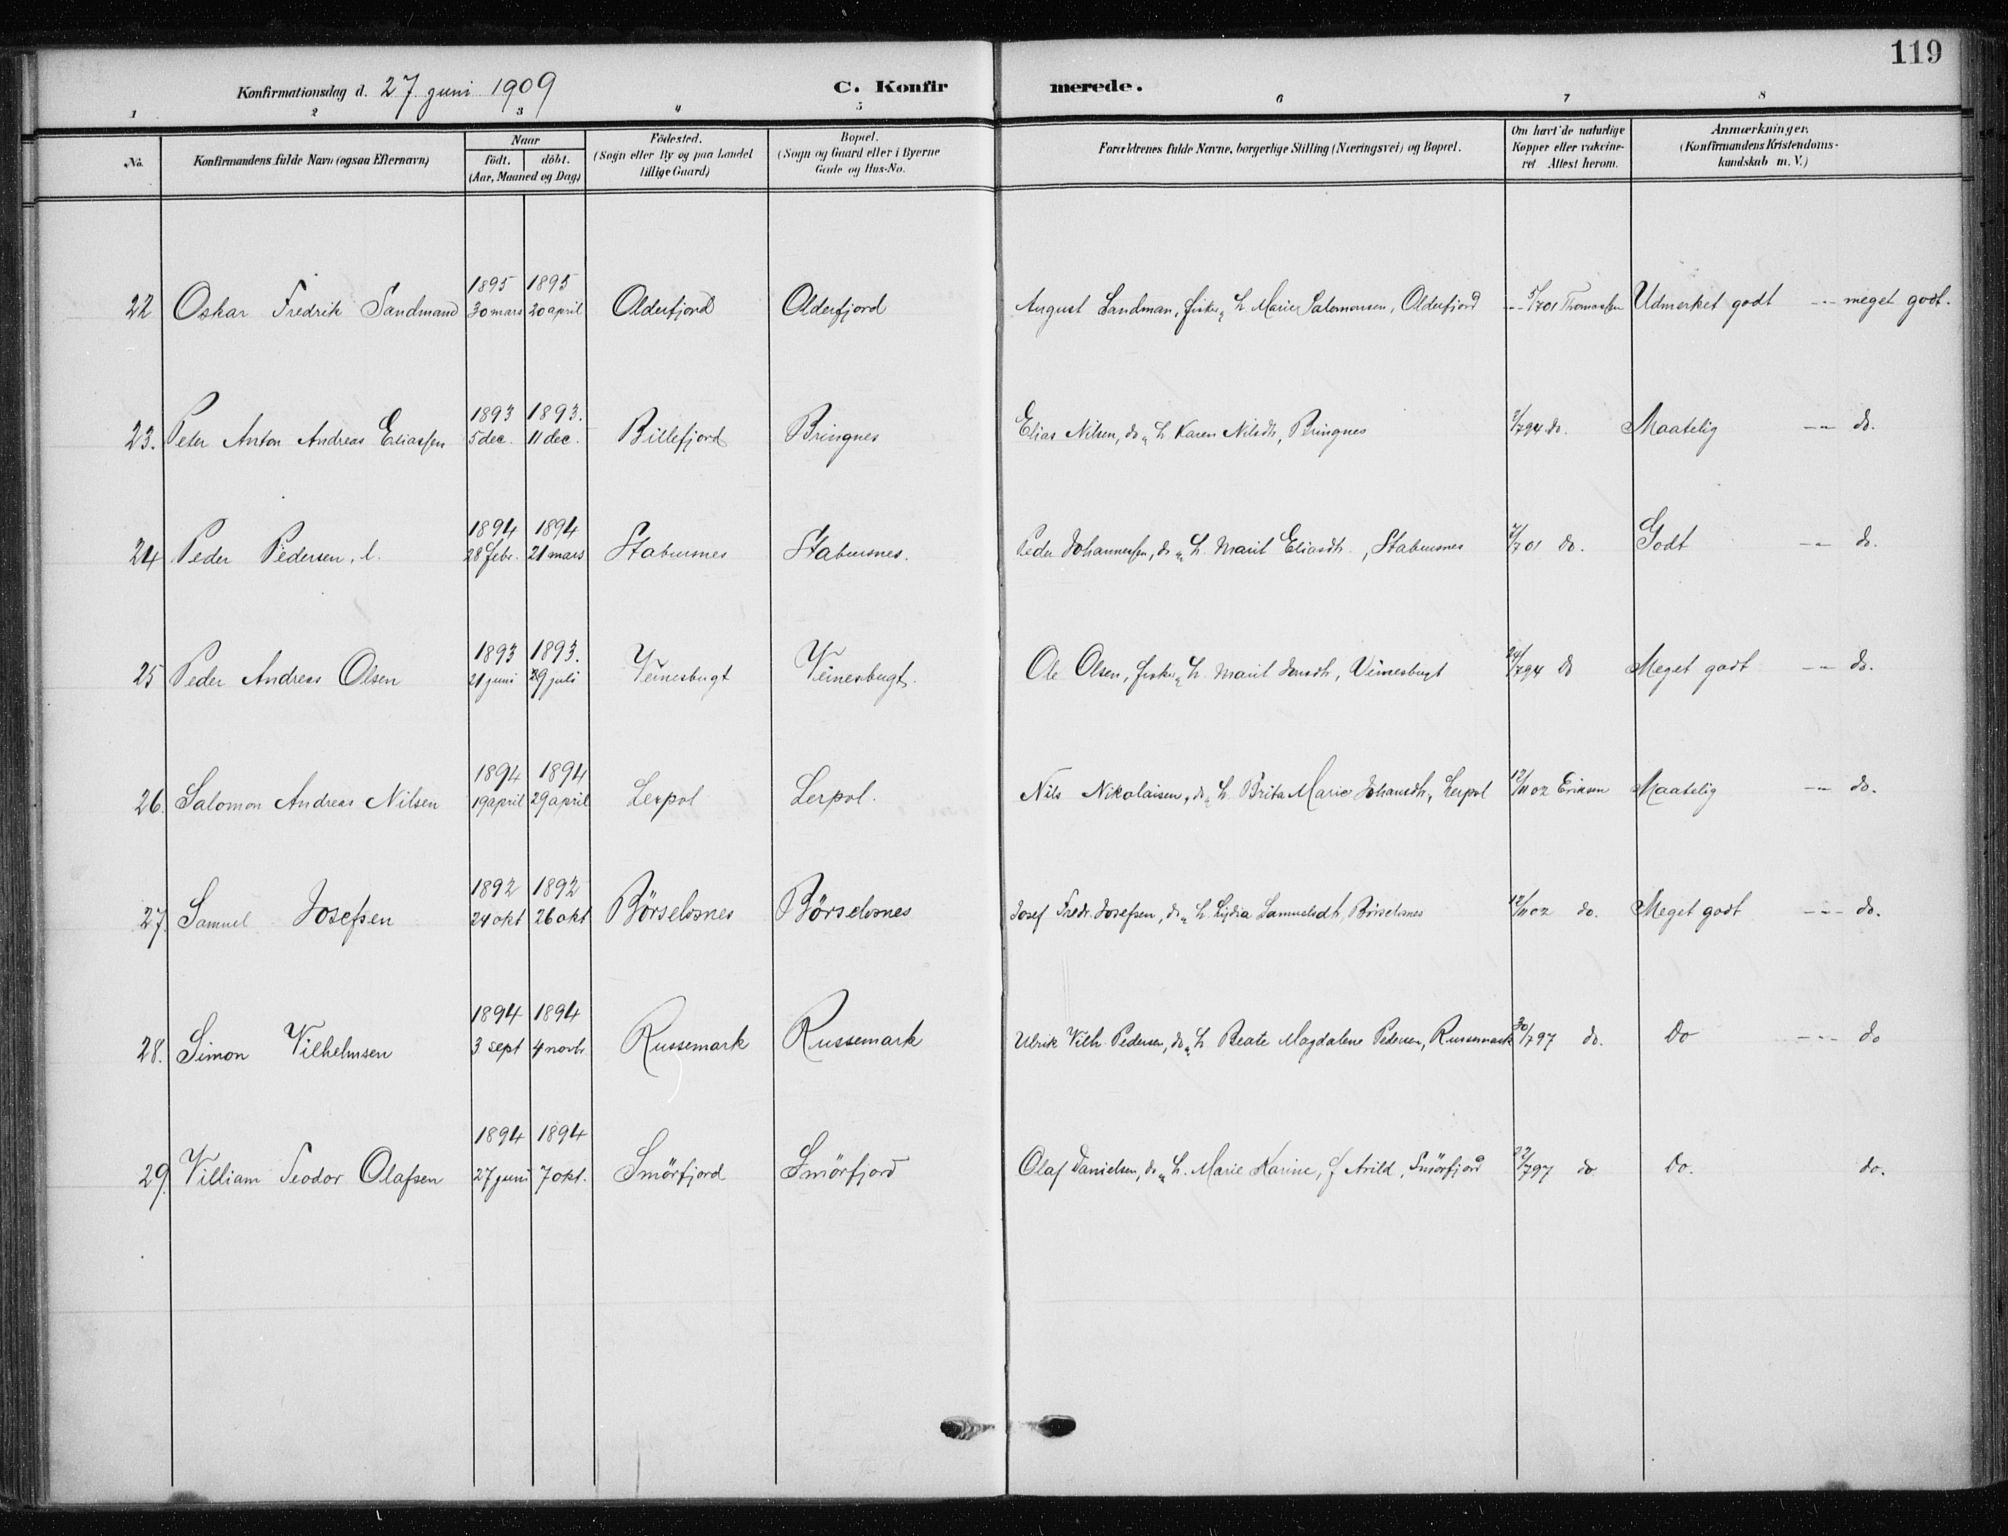 119
Konfirmationsdag d. 27 juni 1909 C. Konfirmerede.
1 2 3 4 5 6 7 8
No. Konfirmandens fulde Navn (ogsaa Efternavn) Naar födt. döbt. (Aar, Maaned og Dag) Födested. (Sogn eller By og paa Landet tillige Gaard) Bopæl. (Sogn og Gaard eller i Byerne Gade og Hus-No. Forældrenes fulde Navne, borgerlige Stilling (Næringsvei) og Bopæl. Om havt de naturlige Kopper eller vakcineret Attest herom. Anmærkninger. (Konfirmandens Kristendomskundskab m. V.)
1895 1895
22 Oskar Fredrik Sandmand 30 mars 20 april Olderfjord Olderfjord August Sandman, fisker, H. Marie Salomonsen, Olderfjord -- 5/7 01 Thomassen Udmerket godt --- meget godt.
1893 1893.
23. Peter Anton Andreas Eliassen 5 dec. 11 dec. Billefjord Bringnes Elias Nilsen, do, H. Karen Nilsdtr, Bringnes /7 94 do. Maatelig -- do.
1894 1894
24 Peder Pedersen, l. 28 febr. 21 mars Stabursnes Stabursnes. Peder Johannessen, do, H. Marit Eliasdtr., Stabursnes /7 01 do. Godt -- do.
1893 1893.
25 Peder Andreas Olsen 21 juni 29 juli Veinesbugt Veinesbugt. Ole Olsen, fisker, H. Marit Jonsdtr, Veinesbugt 24/7 94 do Meget godt -- do.
1894 1894
26. Salomon Andreas Nilsen 19 april 29 april Lerpol Lerpol. Nils Nikolaisen, do, H. Brita Marie Johansdtr, Lerpol 12/11 02 Eriksen Maatelig -- do.
1892 1892
27. Samuel Josefsen 24 okt 26 okt Börselvsnes Börselvsnes Josef Fredr. Josefsen, do, H. Lydia Samuelsdtr, Börselvsnes 12/11 02 do. Meget godt --- do.
1894 1894
28. Simon Vilhelmsen 3 sept 4 novbr. Russemark Russemark Ulrik Vilh. Pedersen, do, H. Beate Magdalene Pedersen, Russemark 30/7 97 do. Do --- do
1894 1894
29. Villiam Teodor Olafsen 27 juni 7 okt. Smörfjord Smörfjord Olaf Danielsen, do, H. Marie Karine, f Arild, Smörfjord 22/7 97 do Do. do.